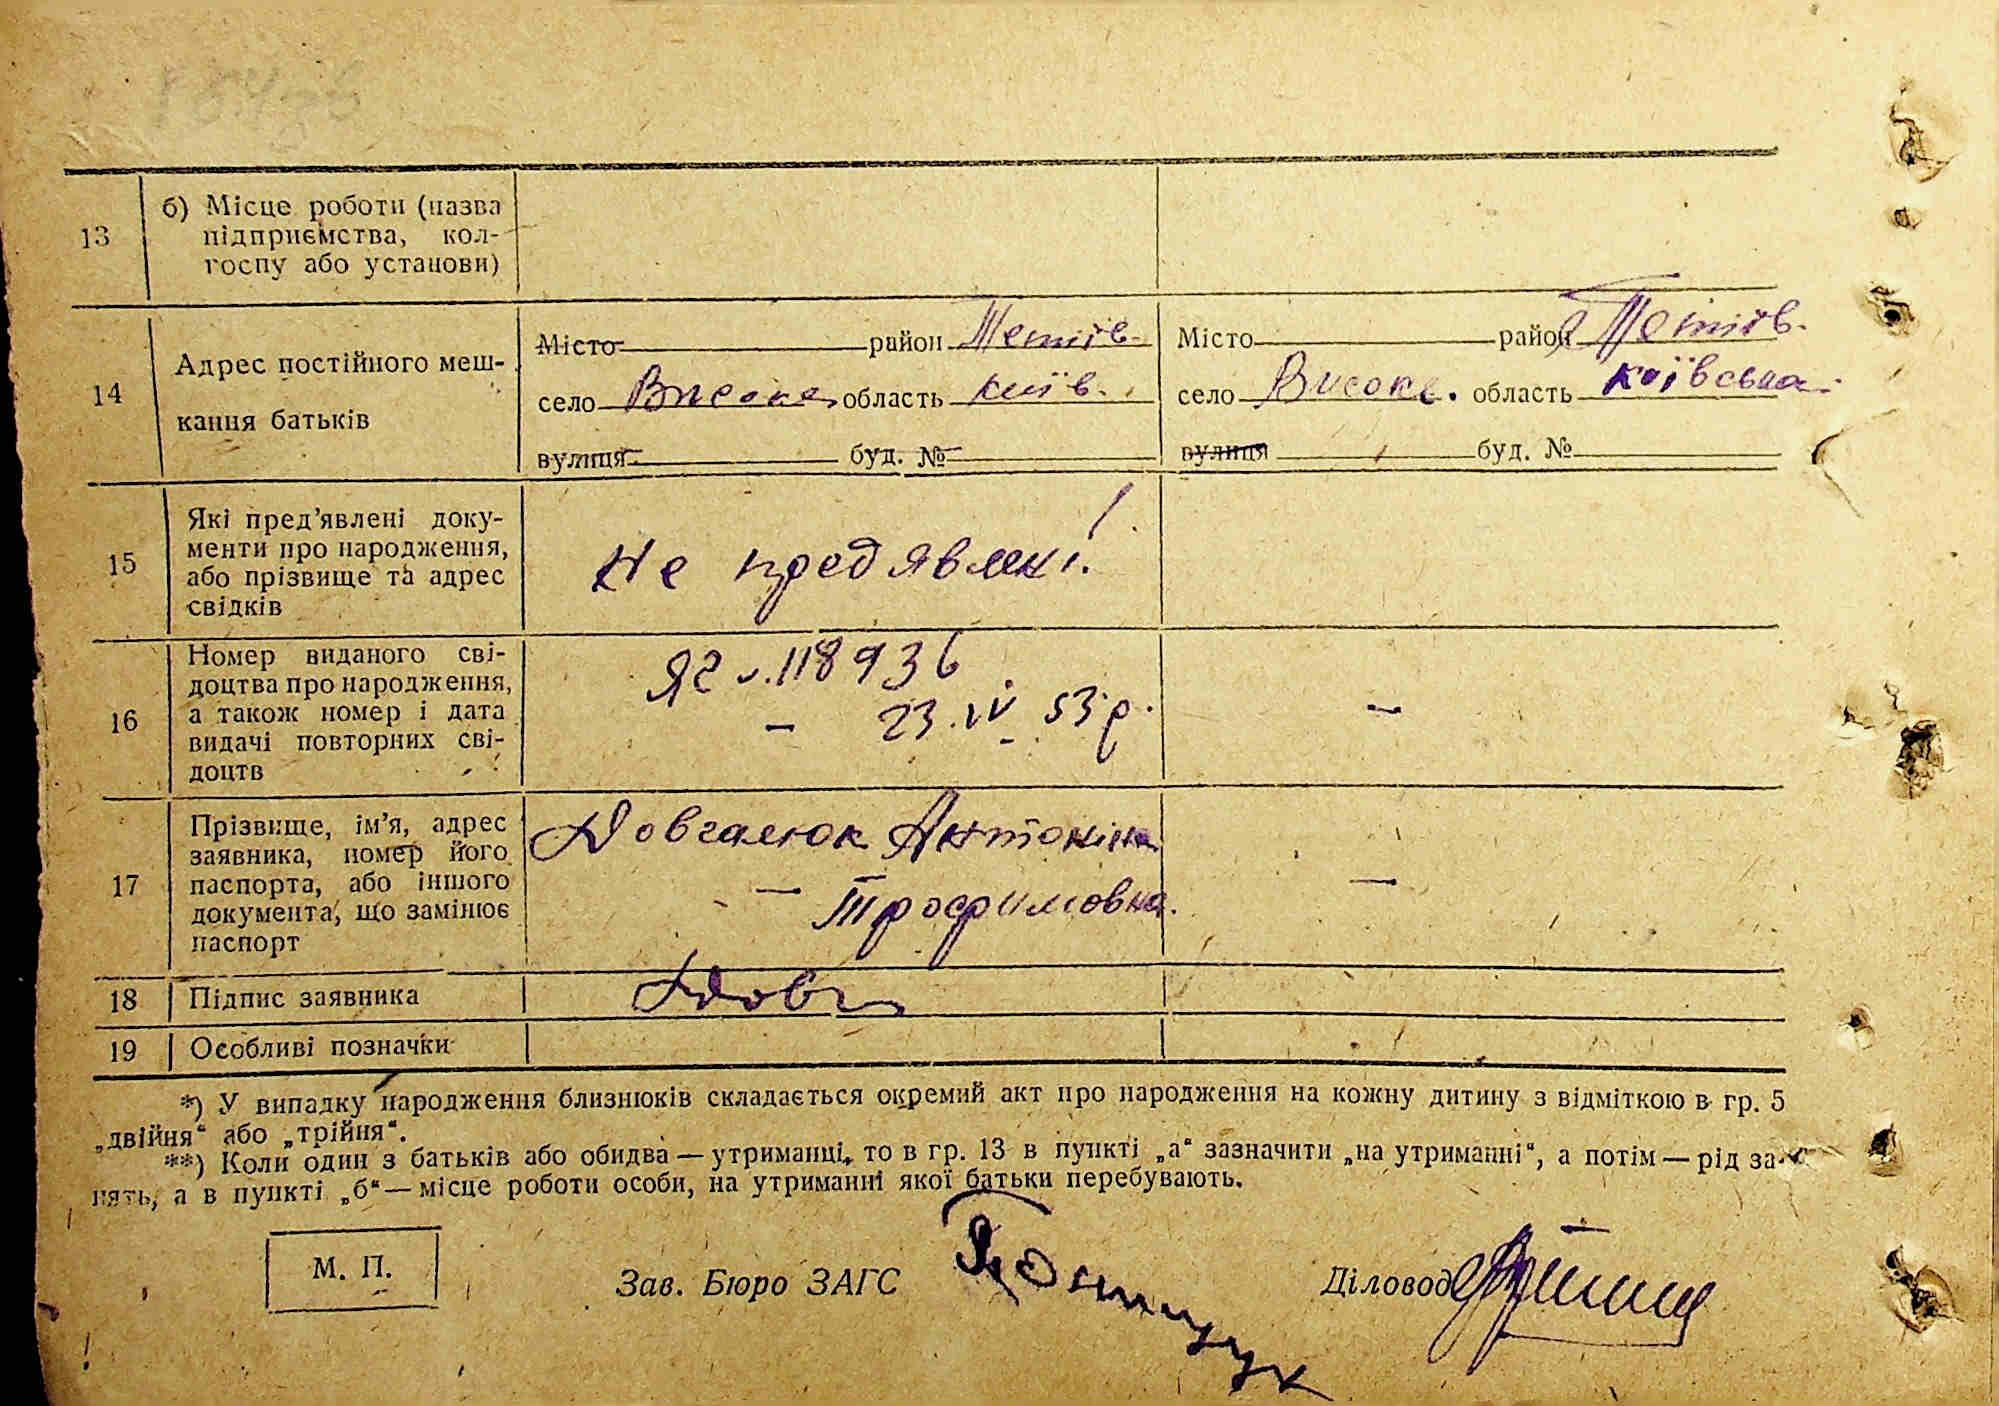 13
б) Місце роботи (назва
підприємства, кол-
госпу або установи)
14
Адрес постійного меш-
кання батьків
Місто район Тетіїв.
село Високе, область київ.
вулиця буд. №
Місто район Тетіїв.
село Високе. область київська.
вулиця буд. №
15
Які пред'явлені доку-
менти про народження,
або прізвище та адрес
свідків
Не предявлені!
16
Номер виданого сві-
доцтва про народження,
а також номер і дата
видачі повторних сві-
доцтв
118936
– 23.IV 53 р.
–
17
Прізвище, ім'я, адрес
заявника, номер його
паспорта, або іншого
документа, що замінює
паспорт
Довгалюк Антоніна
– Трофимовна.
–
18 Підпис заявника Довг
19 Особливі позначки
*) У випадку народження близнюків складається окремий акт про народження на кожну дитину з відміткою в гр. 5
„двійня“ або „трійня“.
**) Коли один з батьків або обидва — утриманці, то в гр. 13 в пункті „а“ зазначити „на утриманні“, а потім — рід за-
нять, а в пункті „б“ — місце роботи особи, на утриманні якої батьки перебувають.
М. П.
Зав. Бюро ЗАГС
Діловод